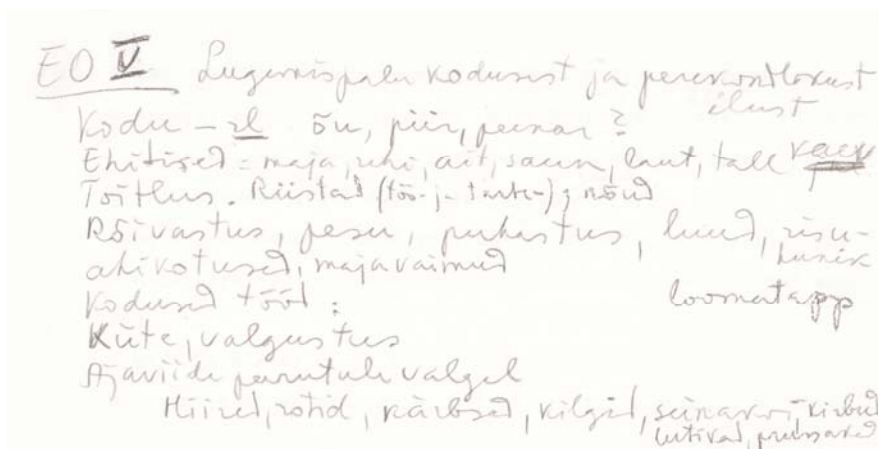 EO V Lugemispalu kodusest ja perekondlikust
elust
Kodu – õu, piir, peenar?
Ehitised: maja, rehi, ait, saun, laut, tall kaev
Toitlus. Riistad (töö- ja tarbe-); nõud
Rõivastus, pesu, puhastus, luud, risu-
hunik
ahikotused, majavaimud
Kodused tööd:
loomatapp
Küte, valgustus
Ajaviide peerutule valgel
Hiired, rotid, kärbsed, kilgid, kirbud
lutikad, prussakad